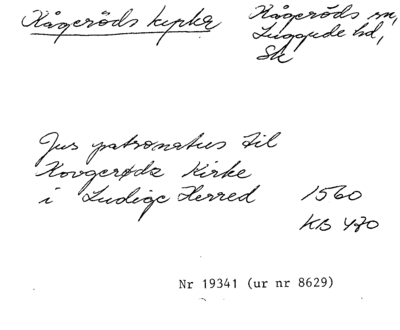 Kågeröds kyrka
Kågeröds sn,
Luggude hd,
Sk
Jus patronatus til
Kovgerøds Kirke
i Ludige Herred 1560
KB 470
Nr 19341 (ur nr 8629)